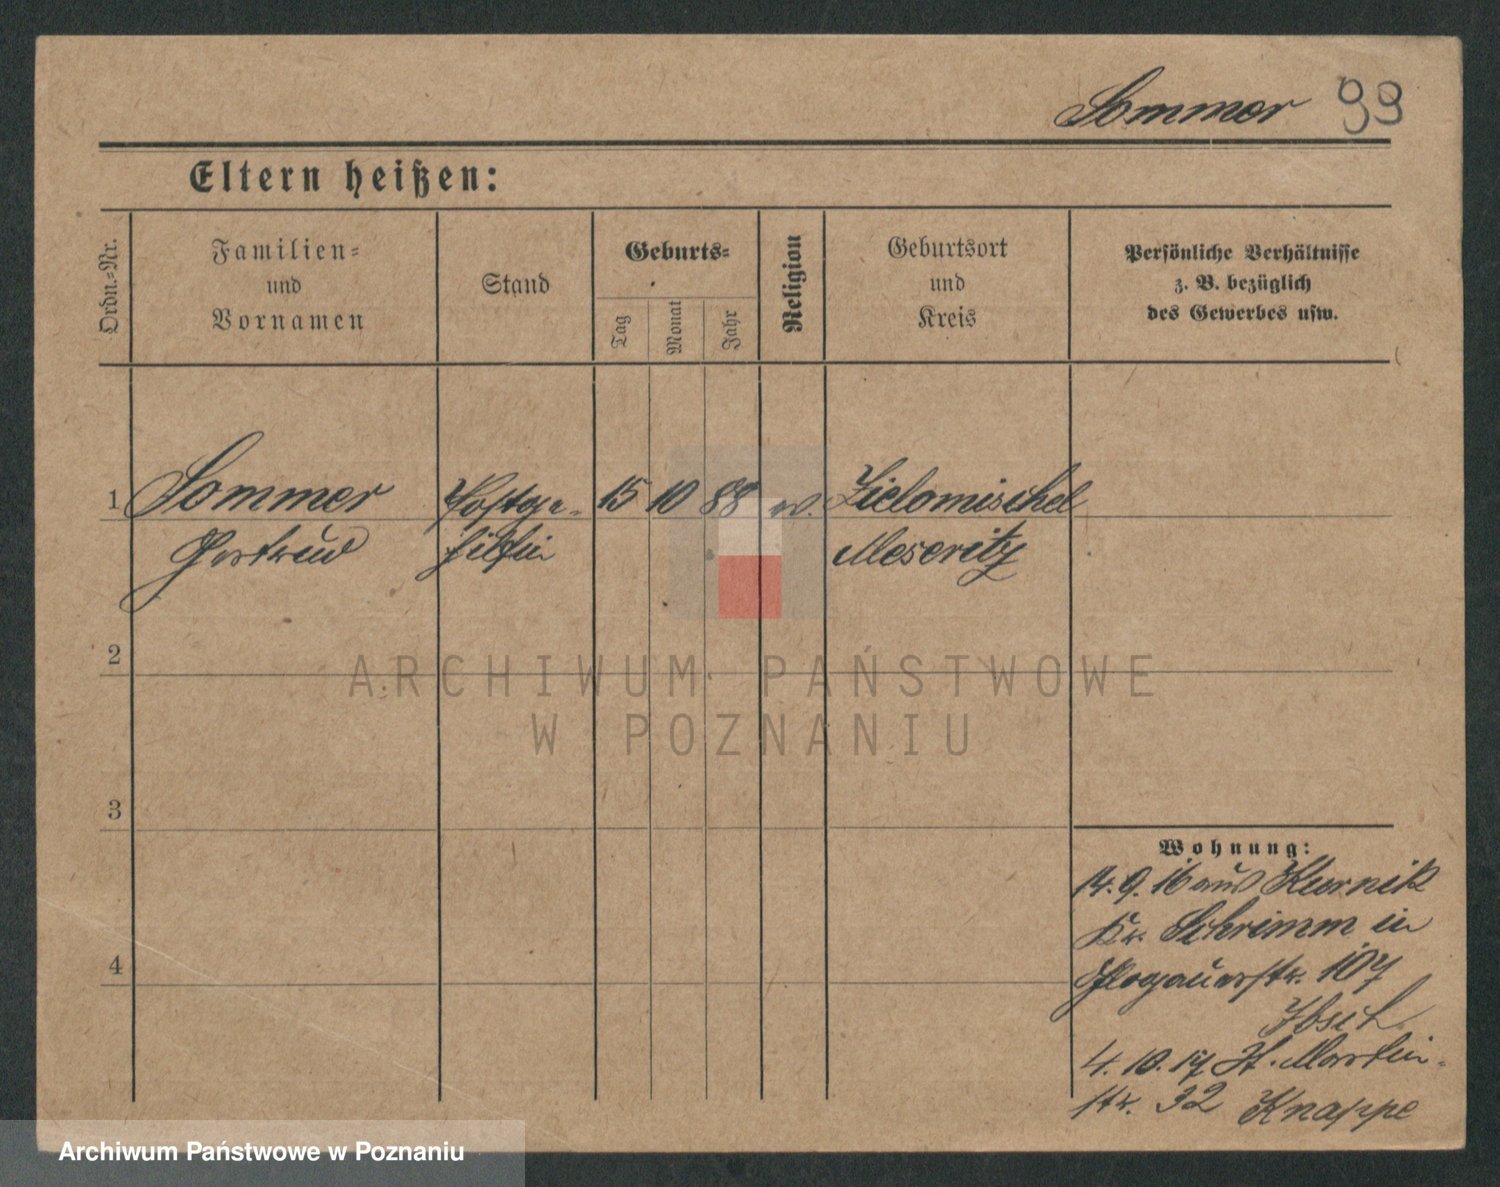 Sommer 99
Eltern heißen:
Ordn.=Nr.
Familien=
und
Vornamen
Stand
Geburts=
Tag
Monat
Jahr
Religion
Geburtsort
und
Kreis
Persönliche Verhältnisse
z. B. bezüglich
des Gewerbes usw.
1 Sommer Postge- 15 10 88 Zielomischel
Gertrud hilfin Meseritz
2
3
4
Wohnung:
14. 9. 16 aus Kurnik
Kr. Schrimm in
Glogauerstr. 107
4. 10. 17 St. Martin-
str. 32 Knappe
ARCHIWUM PAŃSTWOWE
W POZNANIU
Archiwum Państwowe w Poznaniu